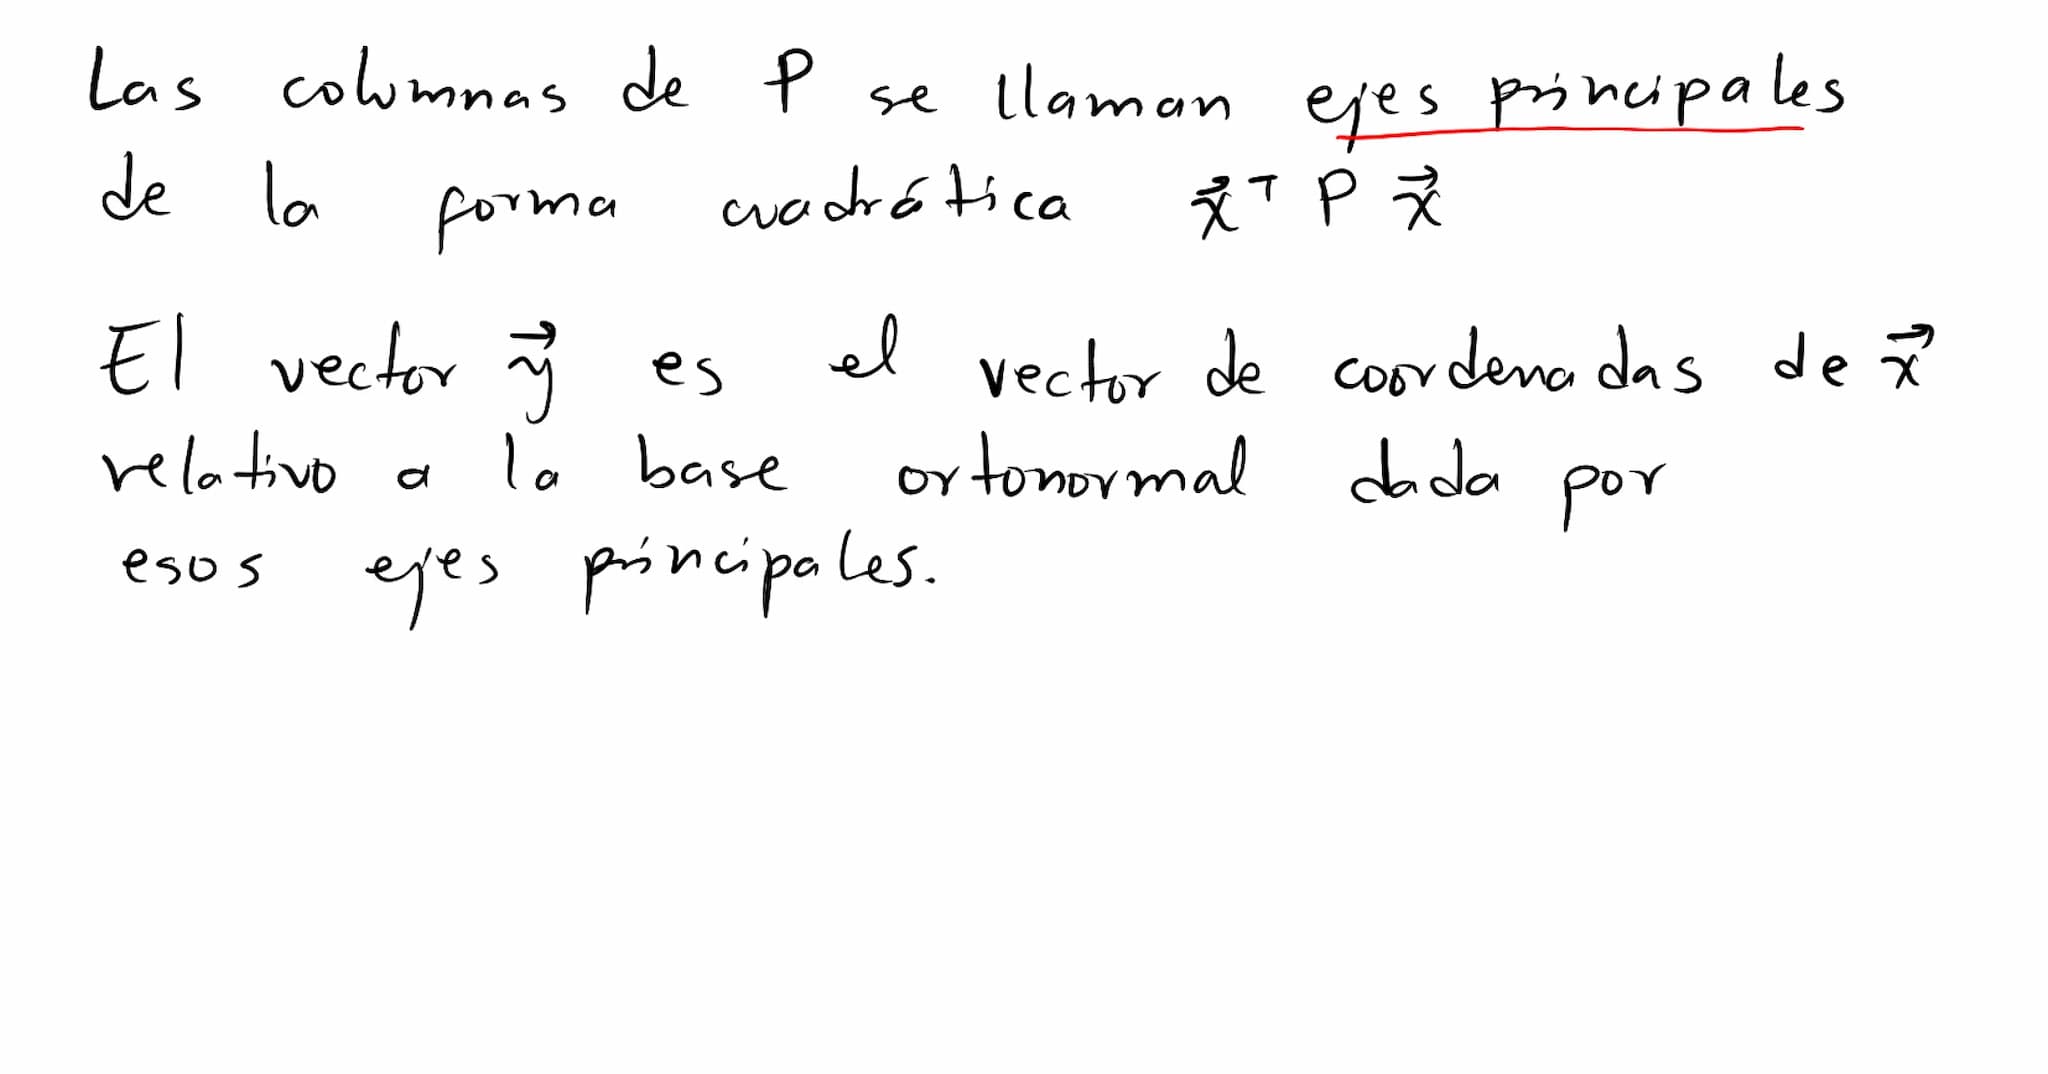 Las columnas de P se llaman ejes principales
de la forma cuadrática x⃗ᵀ P x⃗
El vector y⃗ es el vector de coordenadas de x⃗
relativo a la base ortonormal dada por
esos ejes principales.